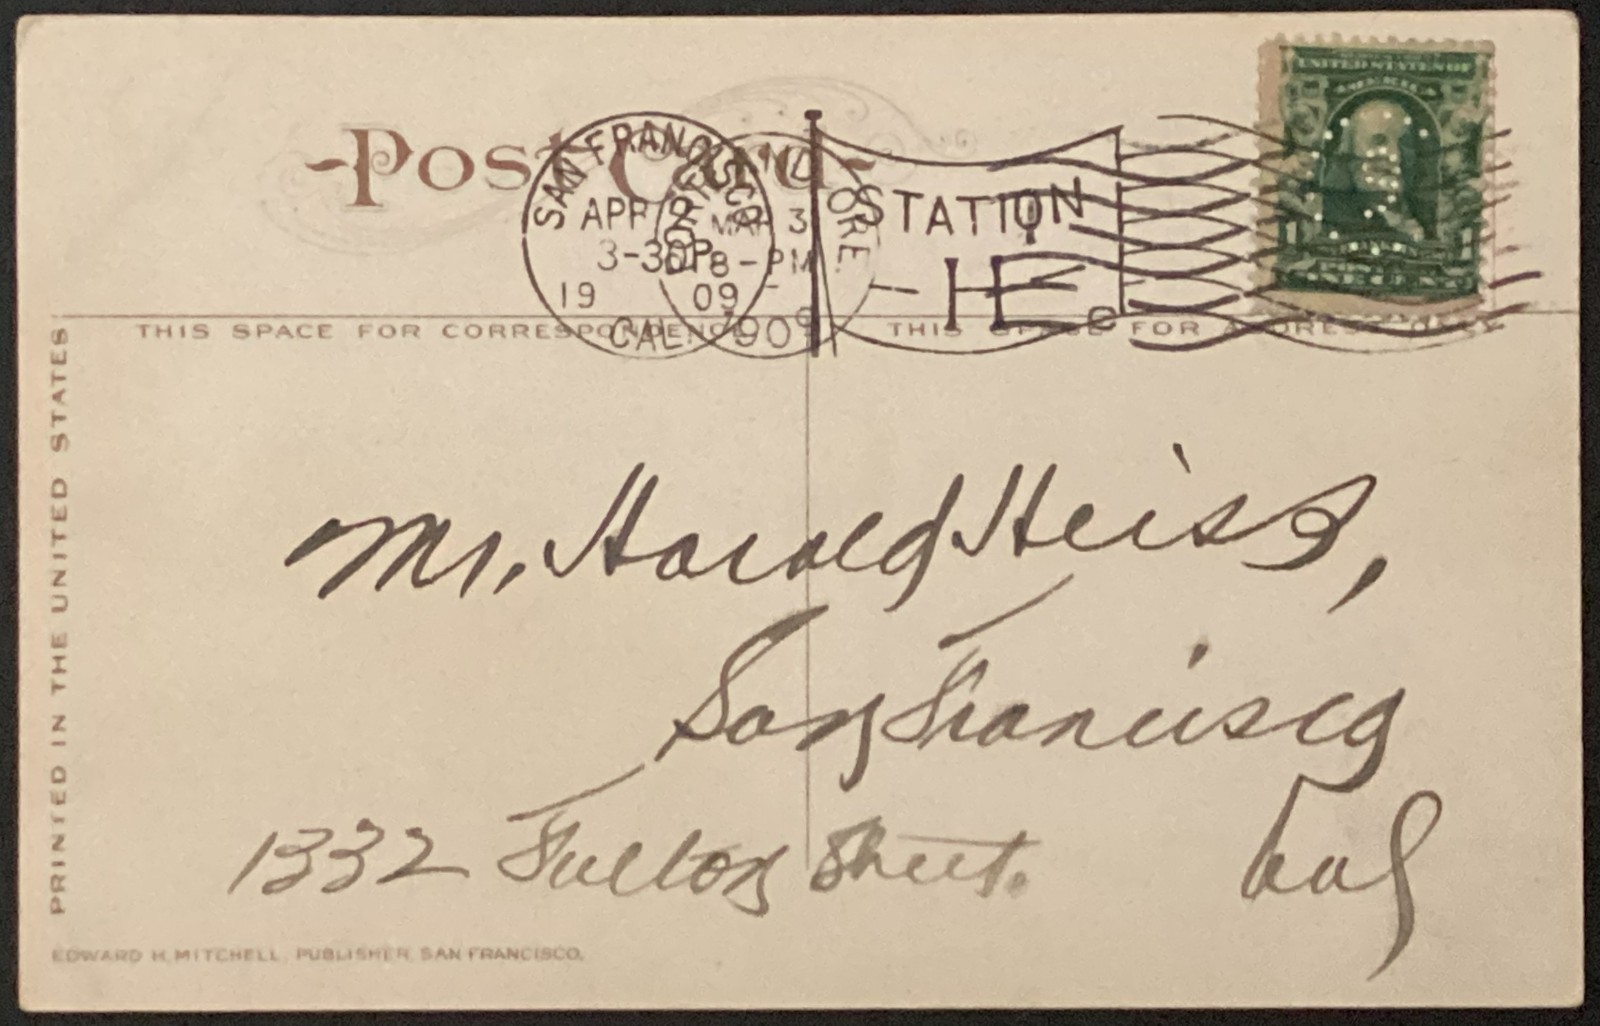 Post Card
SAN FRANCISCO
APR 2
3-30P
19 09
CAL.
PORTLAND ORE.
MAR 31
8-PM
1909
STATION
UNITED STATES OF
AMERICA
THIS SPACE FOR CORRESPONDENCE
THIS SPACE FOR ADDRESS ONLY
PRINTED IN THE UNITED STATES
Mr. Harold Heiss,
San Francisco
1332 Fulton Street. Cal
EDWARD H. MITCHELL, PUBLISHER, SAN FRANCISCO.